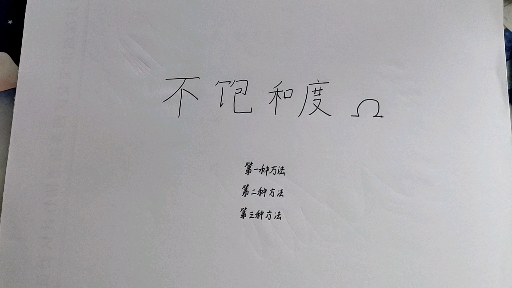 不饱和度 Ω
第一种方法
第二种方法
第三种方法